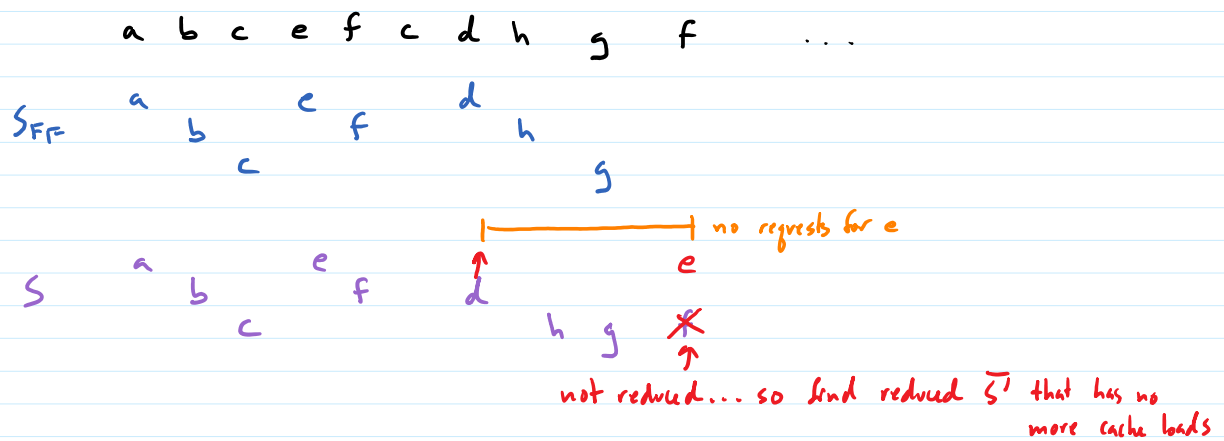 a b c e f c d h g f ...
a e d
S_FF b f h
c g
no requests for e
a e e
S b f d
c h g f
not reduced... so find reduced S̅' that has no
more cache loads